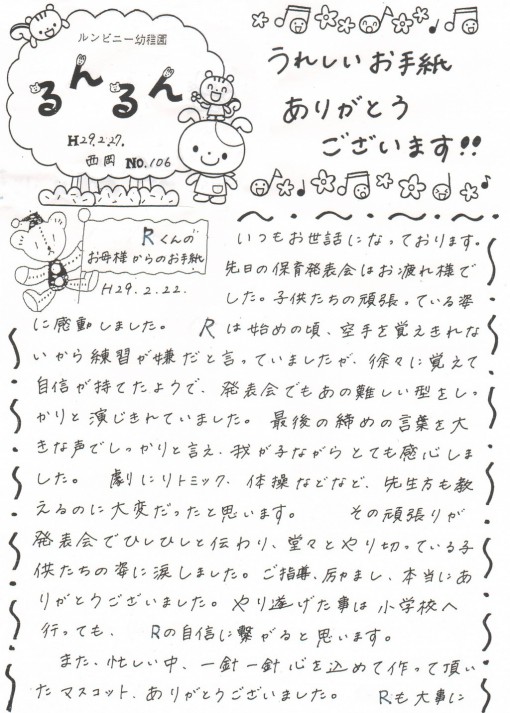 ルンビニー幼稚園
るんるん
H29.2.27.
西岡 No.106
うれしいお手紙
ありがとう
ございます!!
Rくんの
お母様からのお手紙
H29.2.22.
いつもお世話になっております。
先日の保育発表会はお疲れ様で
した。子供たちの頑張っている姿
に感動しました。 Rは始めの頃、空手を覚えきれな
いから練習が嫌だと言っていましたが、徐々に覚えて
自信が持てたようで、発表会でもあの難しい型をしっ
かりと演じきれていました。最後の締めの言葉を大
きな声でしっかりと言え、我が子ながらとても感心しま
した。 劇にリトミック、体操などなど、先生方も教
えるのに大変だったと思います。 その頑張りが
発表会でひしひしと伝わり、堂々とやり切っている子
供たちの姿に涙しました。ご指導、励まし、本当にあ
りがとうございました。やり遂げた事は小学校へ
行っても、 Rの自信に繋がると思います。
また、忙しい中、一針一針心を込めて作って頂い
たマスコット、ありがとうございました。 Rも大事に